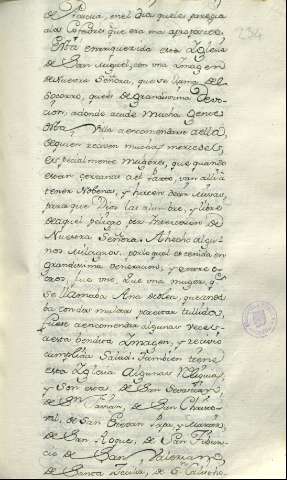 de Francia, en el dia que les paregia
a los Cofrades que era mas aproposito.
Está enrriquezida esta Yglesia
de San Miguel, con vna Ymagen
de Nuestra Señora, que se llama del
Socorro, que es de grandissima Devo-
cion, adonde acude mucha gente
esta Villa a encomendarse a ella,
de quien reciven muchas mercedes,
especialmente Mugeres, que quando
estan cercanas a el Parto, van alli a
tener Nobenas, y hacen decir Missas,
para que Dios las alumbre, y libre
de aquel peligro por Intercesion de
Nuestra Señora. A hecho algu-
nos Milagros, por lo qual es tenida en
grandissima veneracion, y entre o-
tros, fue vno, que vna muger q.e
se llamaba Ana de Leon, que anda
ba con dos muletas por estar tullida,
fuese a encomendar algunas veces
a esta bendita Ymagen, y recivio
cumplida Salud. Tambien tiene
esta Yglesia Algunas Reliquias,
y son estas, de San Sevastian,
de S.n Fabian, de San Christo-
val, de San Estevan Papa y Martir,
de San Roque, de San Tibur-
cio de San Valeriano,
de Santa Cecilia, de